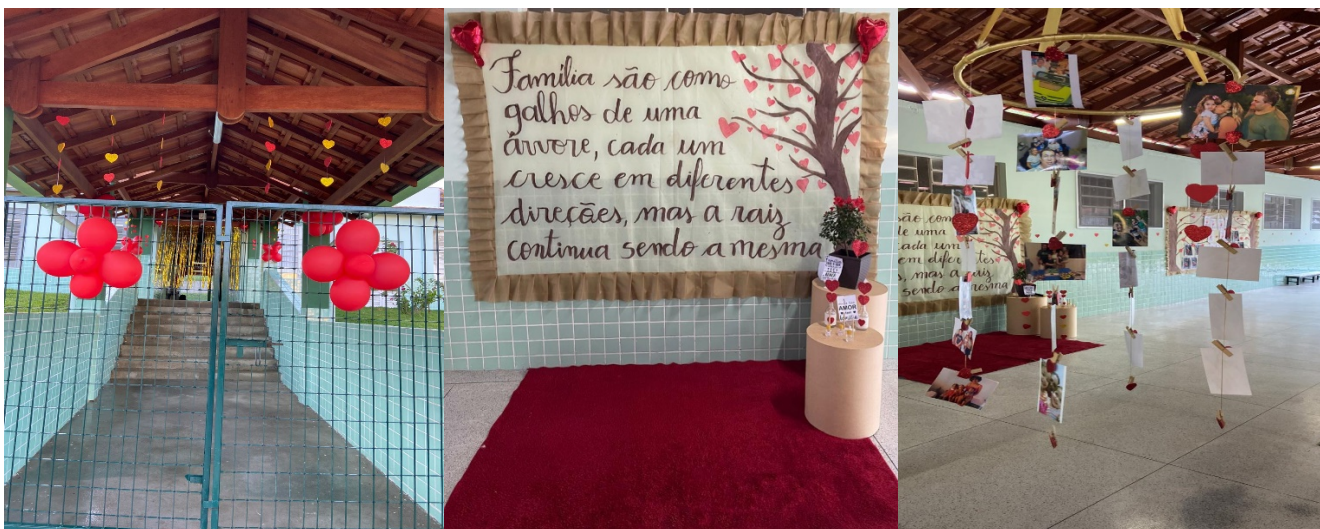 Família são como
galhos de uma
árvore, cada um
cresce em diferentes
direções, mas a raiz
continua sendo a mesma
AMOR
são com
de uma
cada um
em diferentes
s, mas a raiz
sendo a mesma